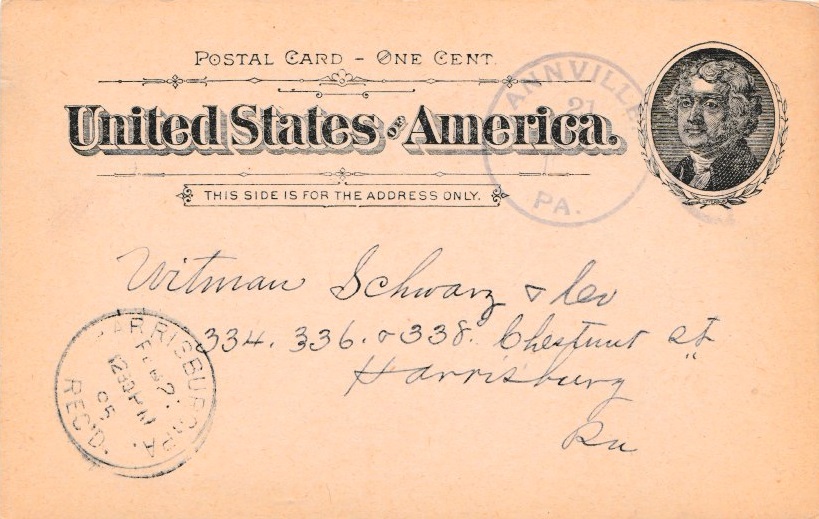 POSTAL CARD – ONE CENT.
United States OF America.
THIS SIDE IS FOR THE ADDRESS ONLY.
ANNVILLE
21
PA.
Witman Schwarz &
334. 336. & 338. Chestnut St
Harrisburg
Pa
HARRISBURG, PA.
1230PM
95
REC'D.